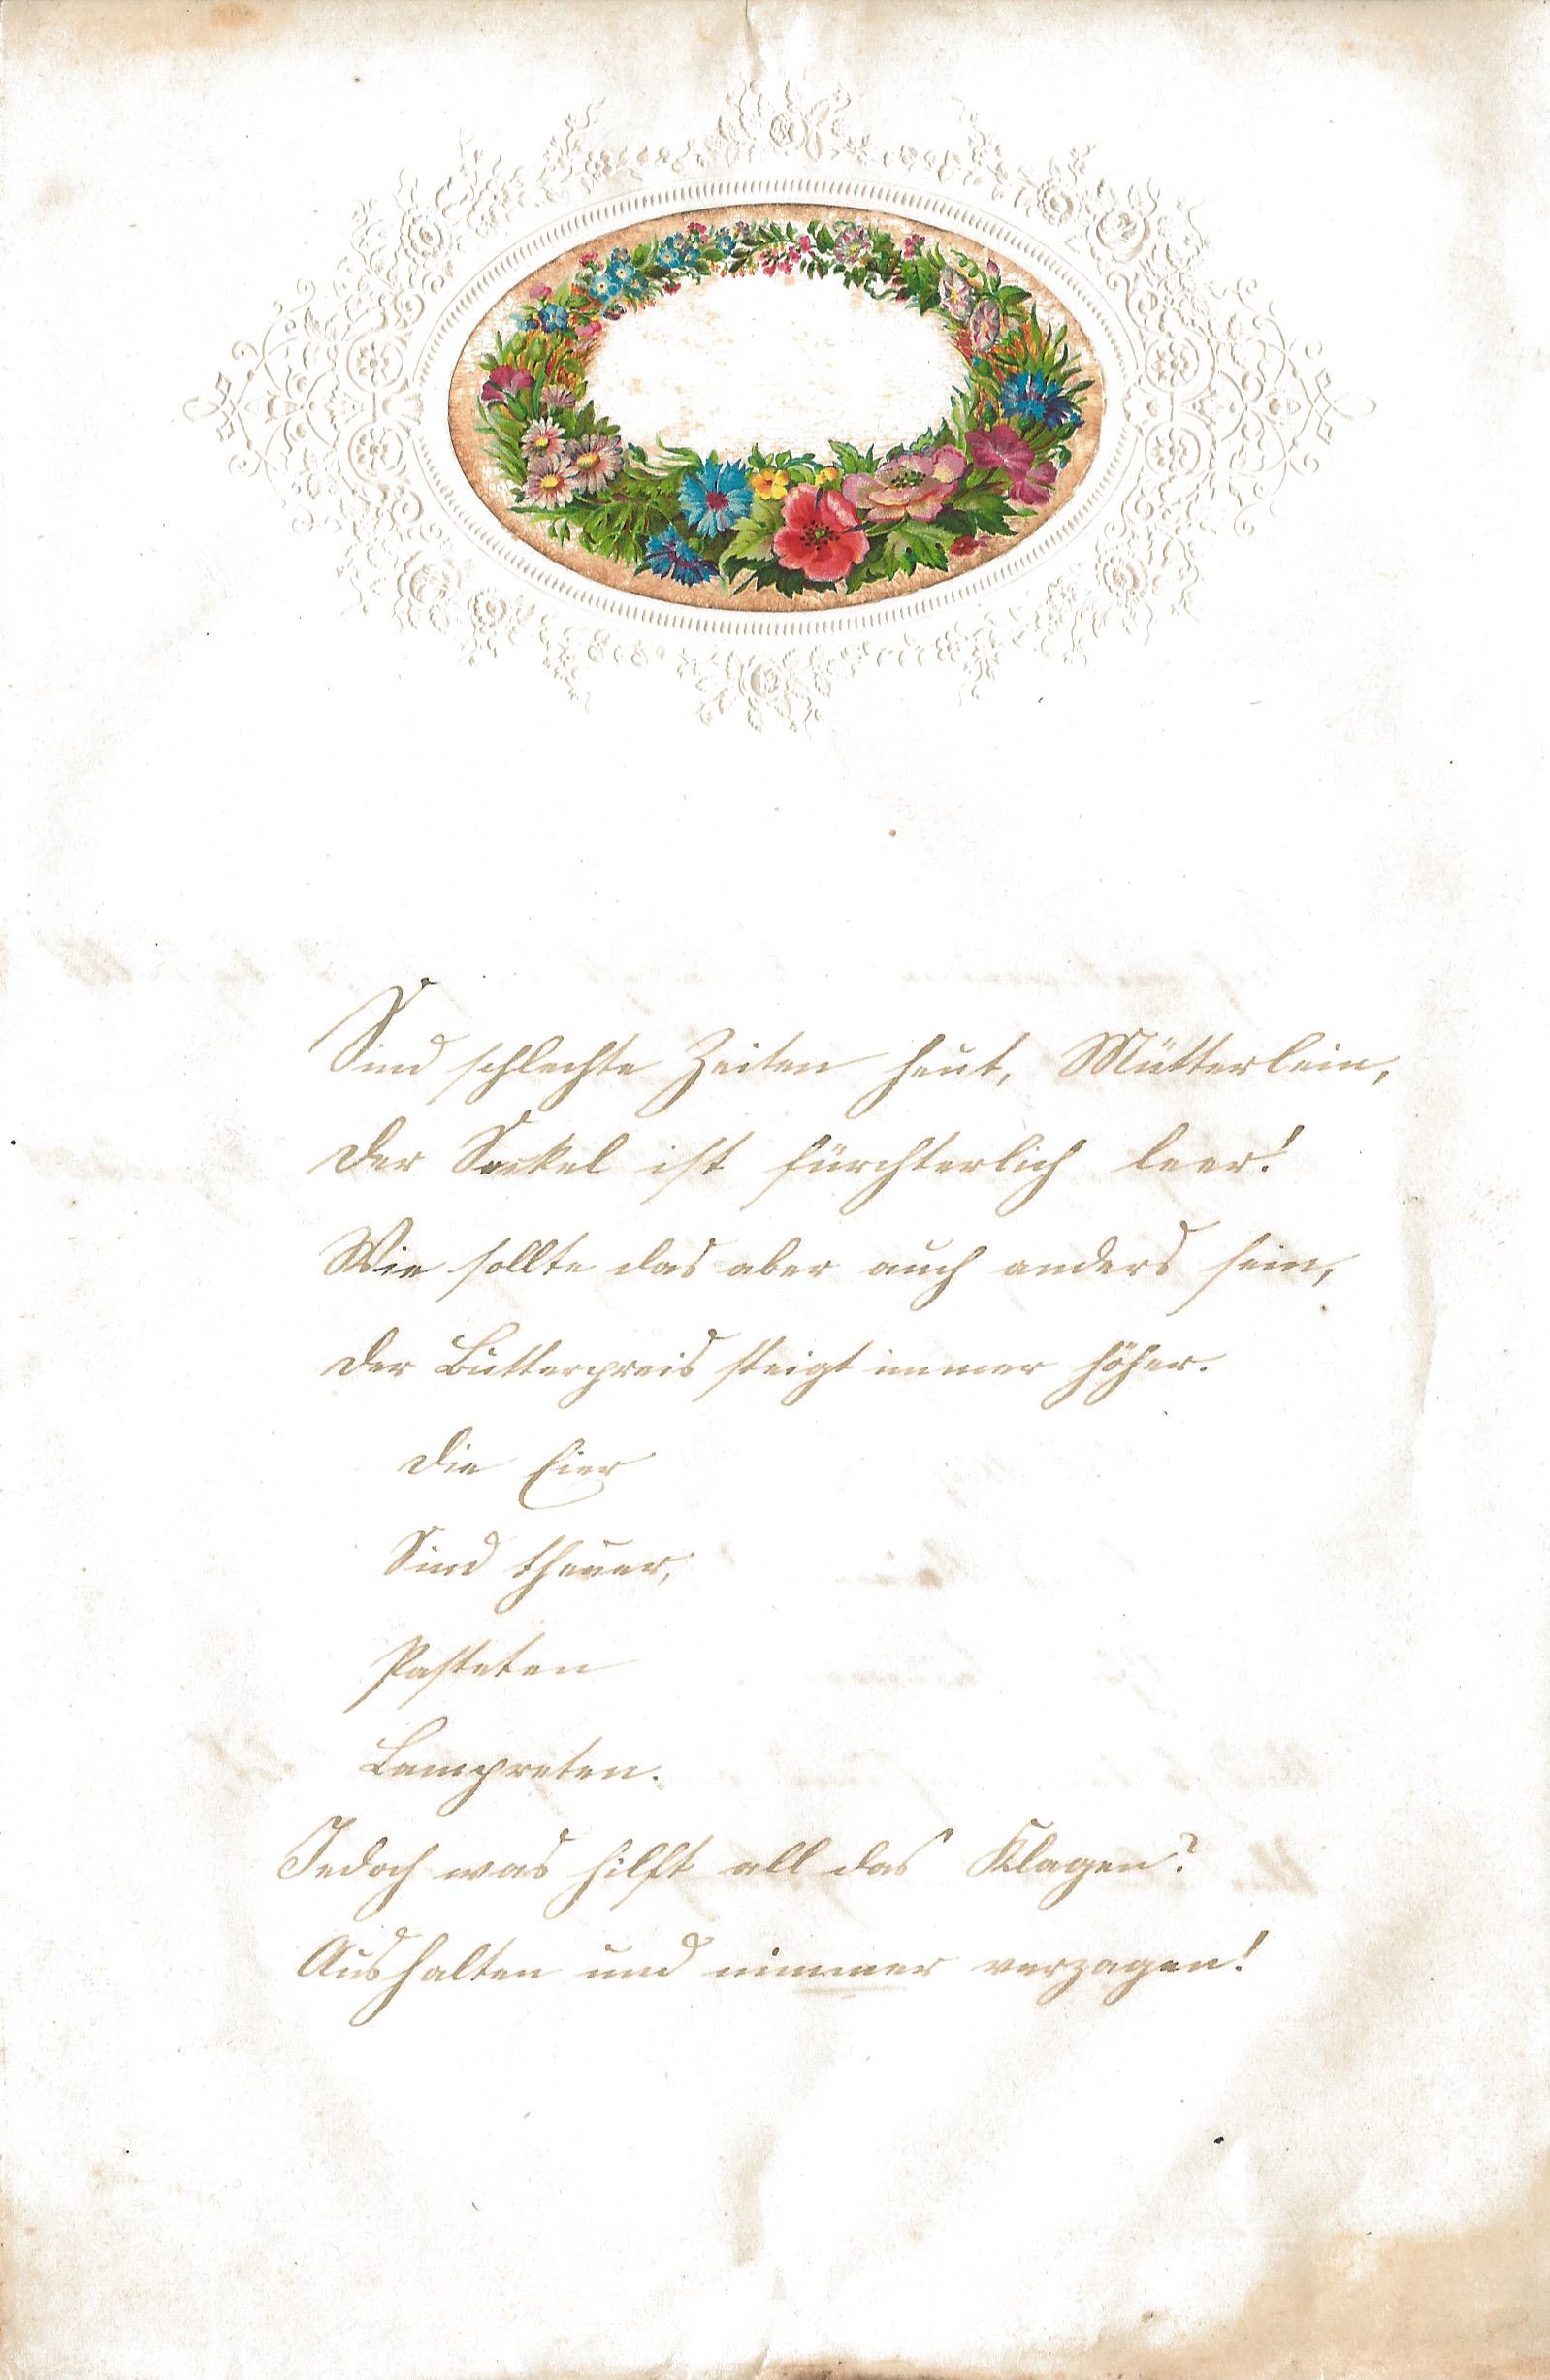 Sind schlechte Zeiten heut, Mütterlein,
Der Seckel ist fürchterlich leer!
Wie sollte das aber auch anders sein,
Der Butterpreis steigt immer höher.
Die Eier
Sind theuer,
Pasteten
Lampreten.
Jedoch was hilft all das Klagen?
Aushalten und nimmer verzagen!